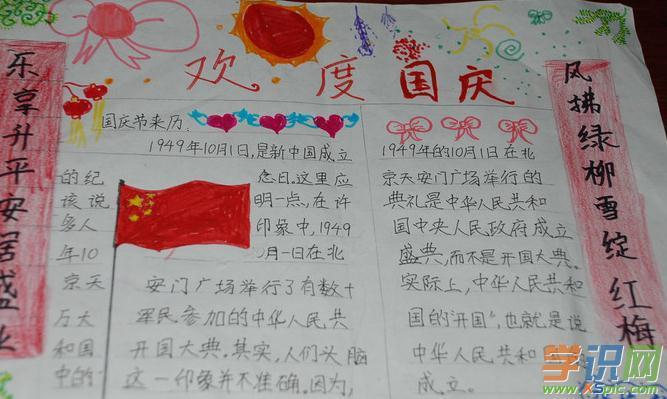 欢度国庆
乐享升平安居盛
国庆节来历:
1949年10月1日,是新中国成立
的纪念日。这里应
该说明一点,在许
多人印象中,1949
年10月一日在北
京天安门广场举行了有数十
万大军民参加的中华人民共
和国开国大典。其实,人们头脑
中的这一印象并不准确。因为,
1949年的10月1日在北
京天安门广场举行的
典礼是中华人民共和
国中央人民政府成立
盛典,而不是开国大典。
实际上,中华人民共和
国的"开国",也就是说
中华人民共和
成立。
风拂绿柳雪绽红梅
学识网
www.XSpic.com